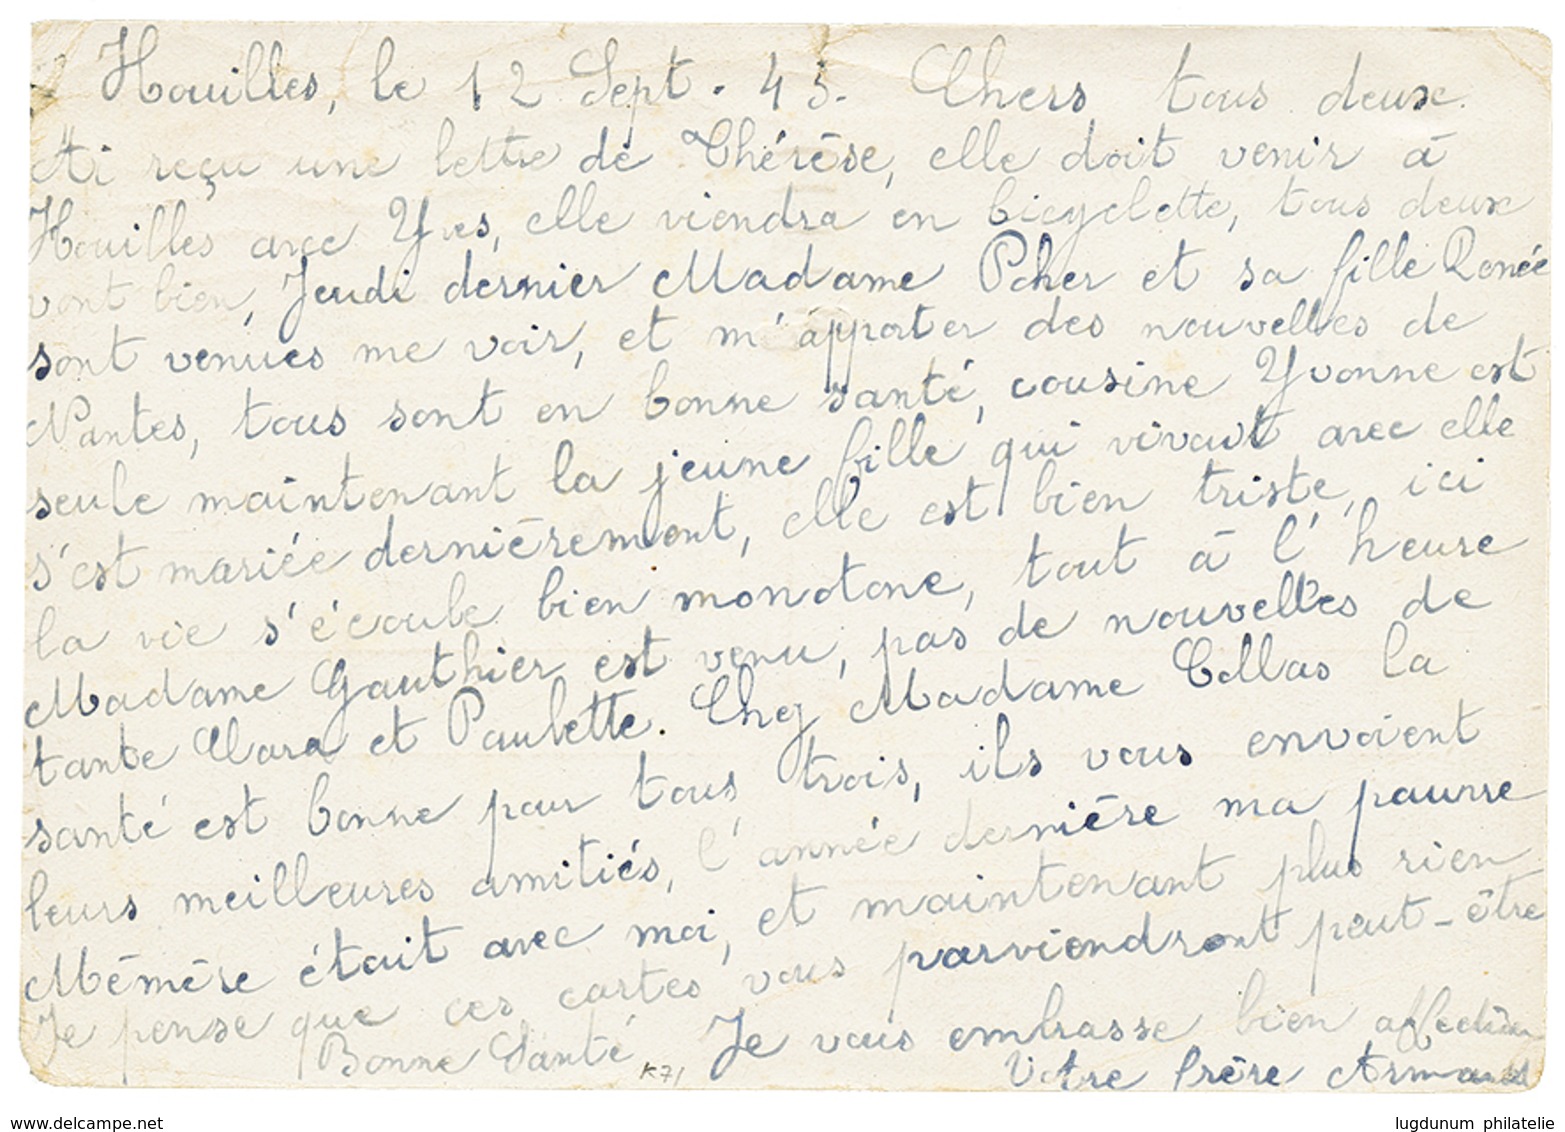 Houilles, le 12 Sept. 43. Chers tous deux.
Ai reçu une lettre de Thérèse, elle doit venir à
Houilles avec Yves, elle viendra en bicyclette, tous deux
vont bien, Jeudi dernier Madame Pcher et sa fille Renée
sont venues me voir, et m'apporter des nouvelles de
Nantes, tous sont en bonne santé, cousine Yvonne est
seule maintenant la jeune fille qui vivait avec elle
s'est mariée dernièrement, elle est bien triste, ici
la vie s'écoule bien monotone, tout à l'heure
Madame Gauthier est venu, pas de nouvelles de
tante Clara et Paulette. Chez Madame Collas la
santé est bonne pour tous trois, ils vous envoient
leurs meilleures amitiés, l'année dernière ma pauvre
Mémère était avec moi, et maintenant plus rien
Je pense que ces cartes vous parviendront peut-être
Bonne Santé Je vous embrasse bien
Votre frère Armand
K71
delcampe.net
lugdunum philatelie